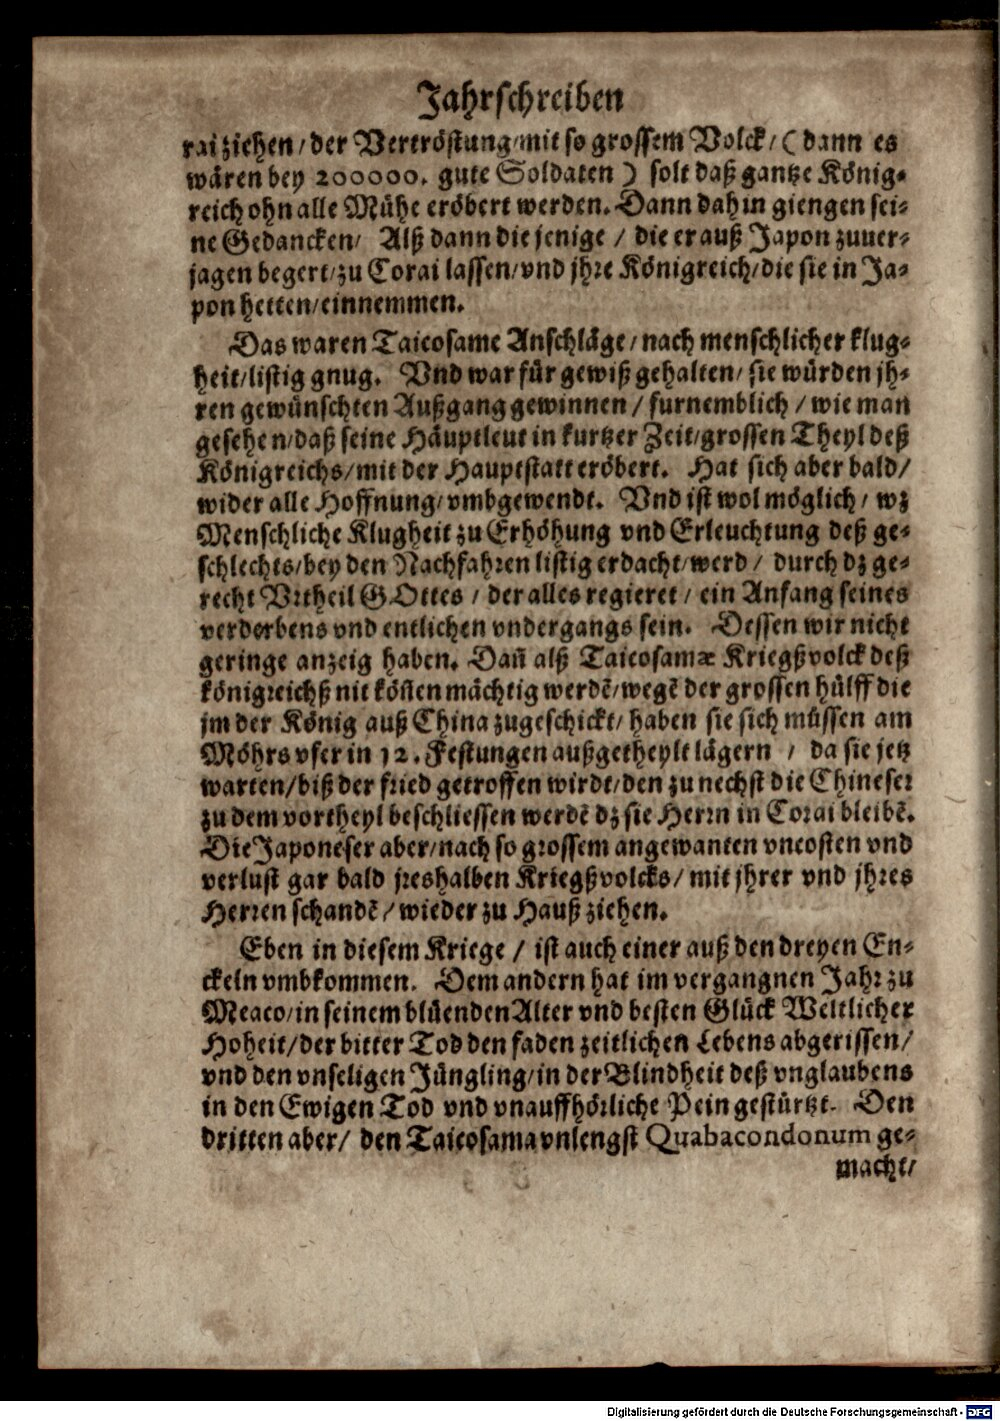 Jahrschreiben
rai ziehen/ der Vertröstung/ mit so grossem Volck/ ( dann es
wären bey 200000. gute Soldaten ) solt daß gantze König-
reich ohn alle Mühe eröbert werden. Dann dahin giengen sei-
ne Gedancken/ Alß dann die jenige / die er auß Japon zuuer-
jagen begert/ zu Corai lassen/ vnd jhre Königreich/ die sie in Ja-
pon hetten/ einnemmen.
Das waren Taicosame Anschläge/ nach menschlicher klug-
heit/ listig gnug. Vnd war für gewiß gehalten/ sie würden jh-
ren gewünschten Außgang gewinnen / furnemblich / wie man
gesehen/ daß seine Häuptleut in kurtzer Zeit/ grossen Theyl deß
Königreichs/ mit der Hauptstatt eröbert. Hat sich aber bald/
wider alle Hoffnung/ vmbgewendt. Vnd ist wol möglich / wz
Menschliche Klugheit zu Erhöhung vnd Erleuchtung deß ge-
schlechts/ bey den Nachfahren listig erdacht/ werd / durch dz ge-
recht Vrtheil GOttes / der alles regieret / ein Anfang seines
verderbens vnd entlichen vndergangs sein. Dessen wir nicht
geringe anzeig haben. Dañ alß Taicosamæ Kriegßvolck deß
königreichß nit kö͞nen mächtig werdē/ wegē der grossen hülff die
jm der König auß China zugeschickt/ haben sie sich müssen am
Möhrs vfer in 12. Festungen außgetheylt lägern / da sie jetz
warten/ biß der fried getroffen wirdt/ den zu nechst die Chineser
zu dem vortheyl beschliessen werdē dz sie Herrn in Corai bleibē.
Die Japoneser aber/ nach so grossem angewanten vncosten vnd
verlust gar bald jreshalben Kriegßvolcks/ mit jhrer vnd jhres
Herren schandē / wieder zu Hauß ziehen.
Eben in diesem Kriege / ist auch einer auß den dreyen En-
ckeln vmbkommen. Dem andern hat im vergangnen Jahr zu
Meaco/ in seinem blüenden Alter vnd besten Glück Weltlicher
Hoheit/ der bitter Tod den faden zeitlichen Lebens abgerissen/
vnd den vnseligen Jüngling/ in der Blindheit deß vnglaubens
in den Ewigen Tod vnd vnauffhörliche Pein gestürtzt. Den
dritten aber/ den Taicosama vnlengst Quabacondonum ge-
macht/
Digitalisierung gefördert durch die Deutsche Forschungsgemeinschaft - DFG